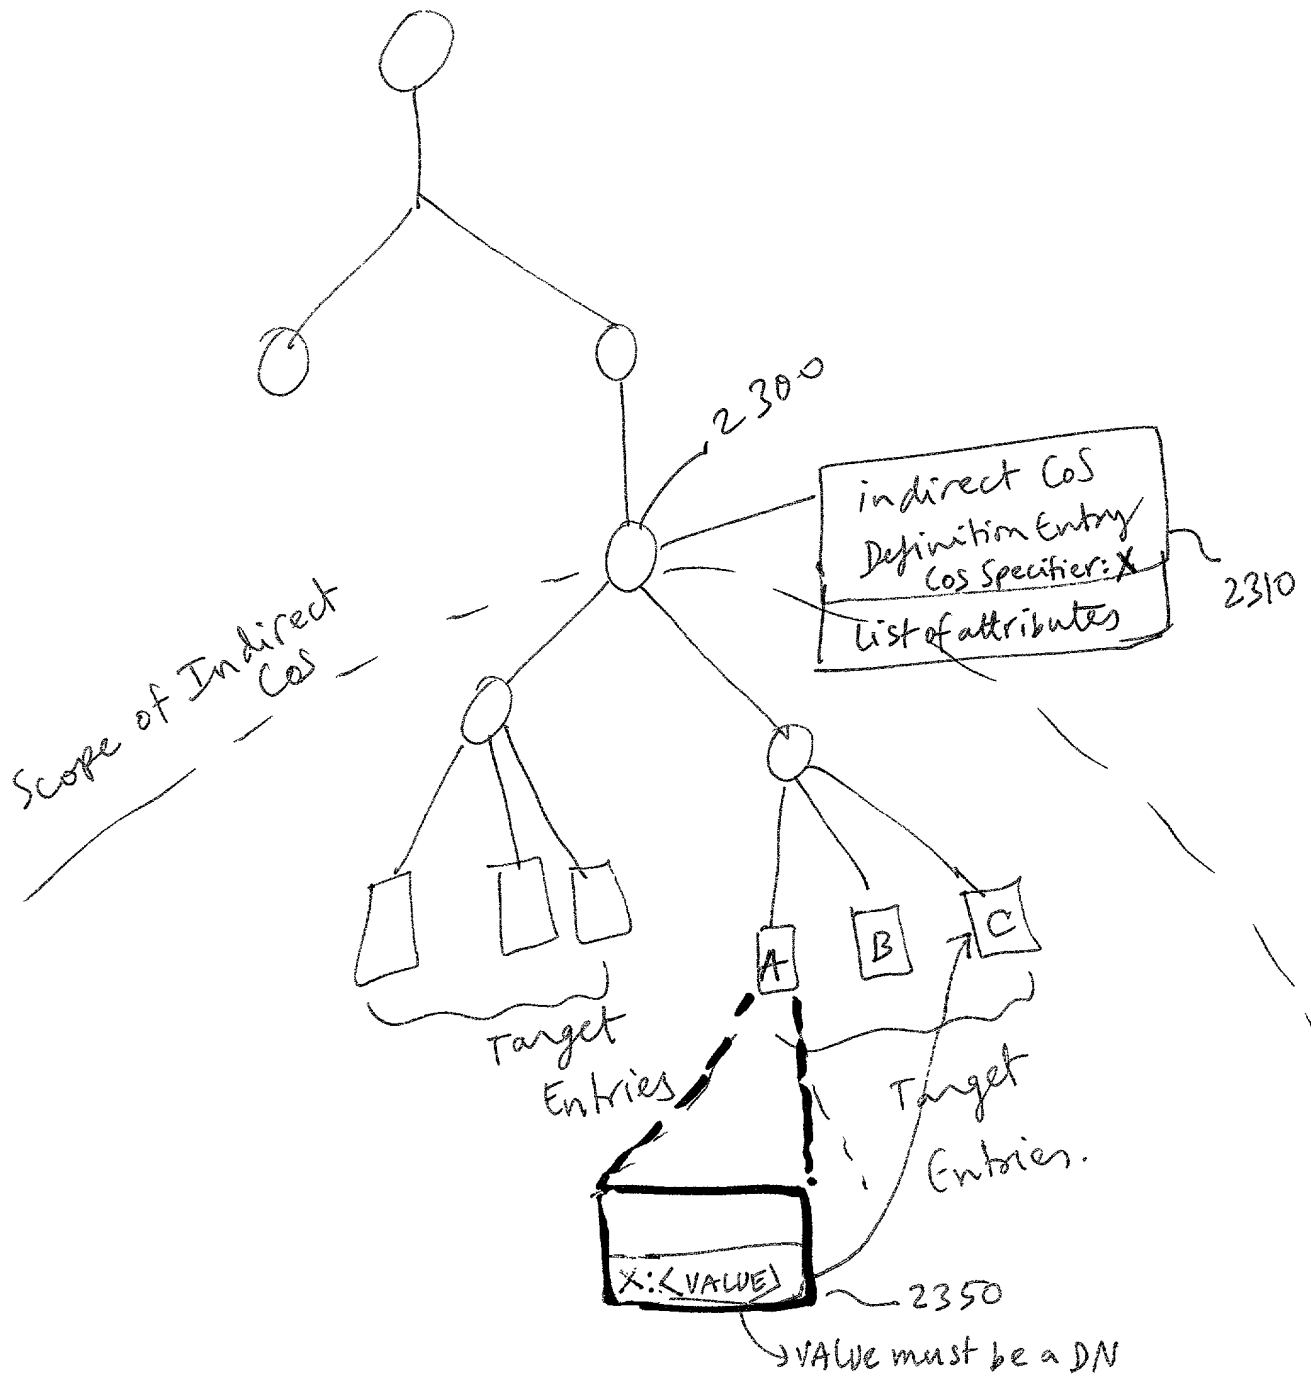 2300
indirect CoS
Definition Entry
Cos Specifier: X
List of attributes
2310
Scope of Indirect
CoS
A
B
C
Target
Entries
Target
Entries.
X:<VALUE>
2350
VALUE must be a DN